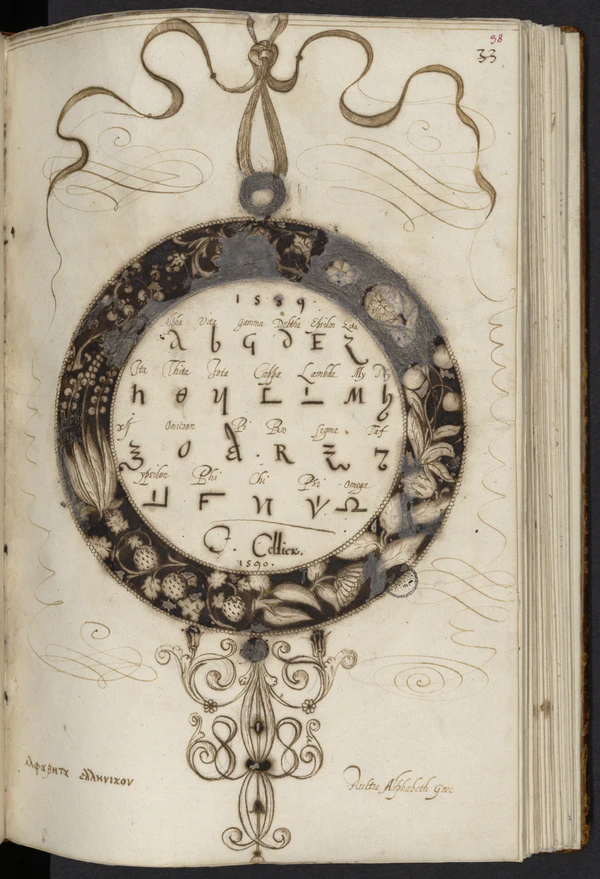 98
33
1589.
Alpha Vita gamma Deltha Epsilon Zeta
λ b G ∂ E Z
Ita Thita Iota Cappa Lambda My Ny
h θ M
xſi Omicron Pi Ro Sigma Taf
O R
ypsilon Phi Chi Psi Omega
Γ Ω
J. Cellier.
1590.
αλφαβητα ελληνικου
Aultre Alphabeth Grec